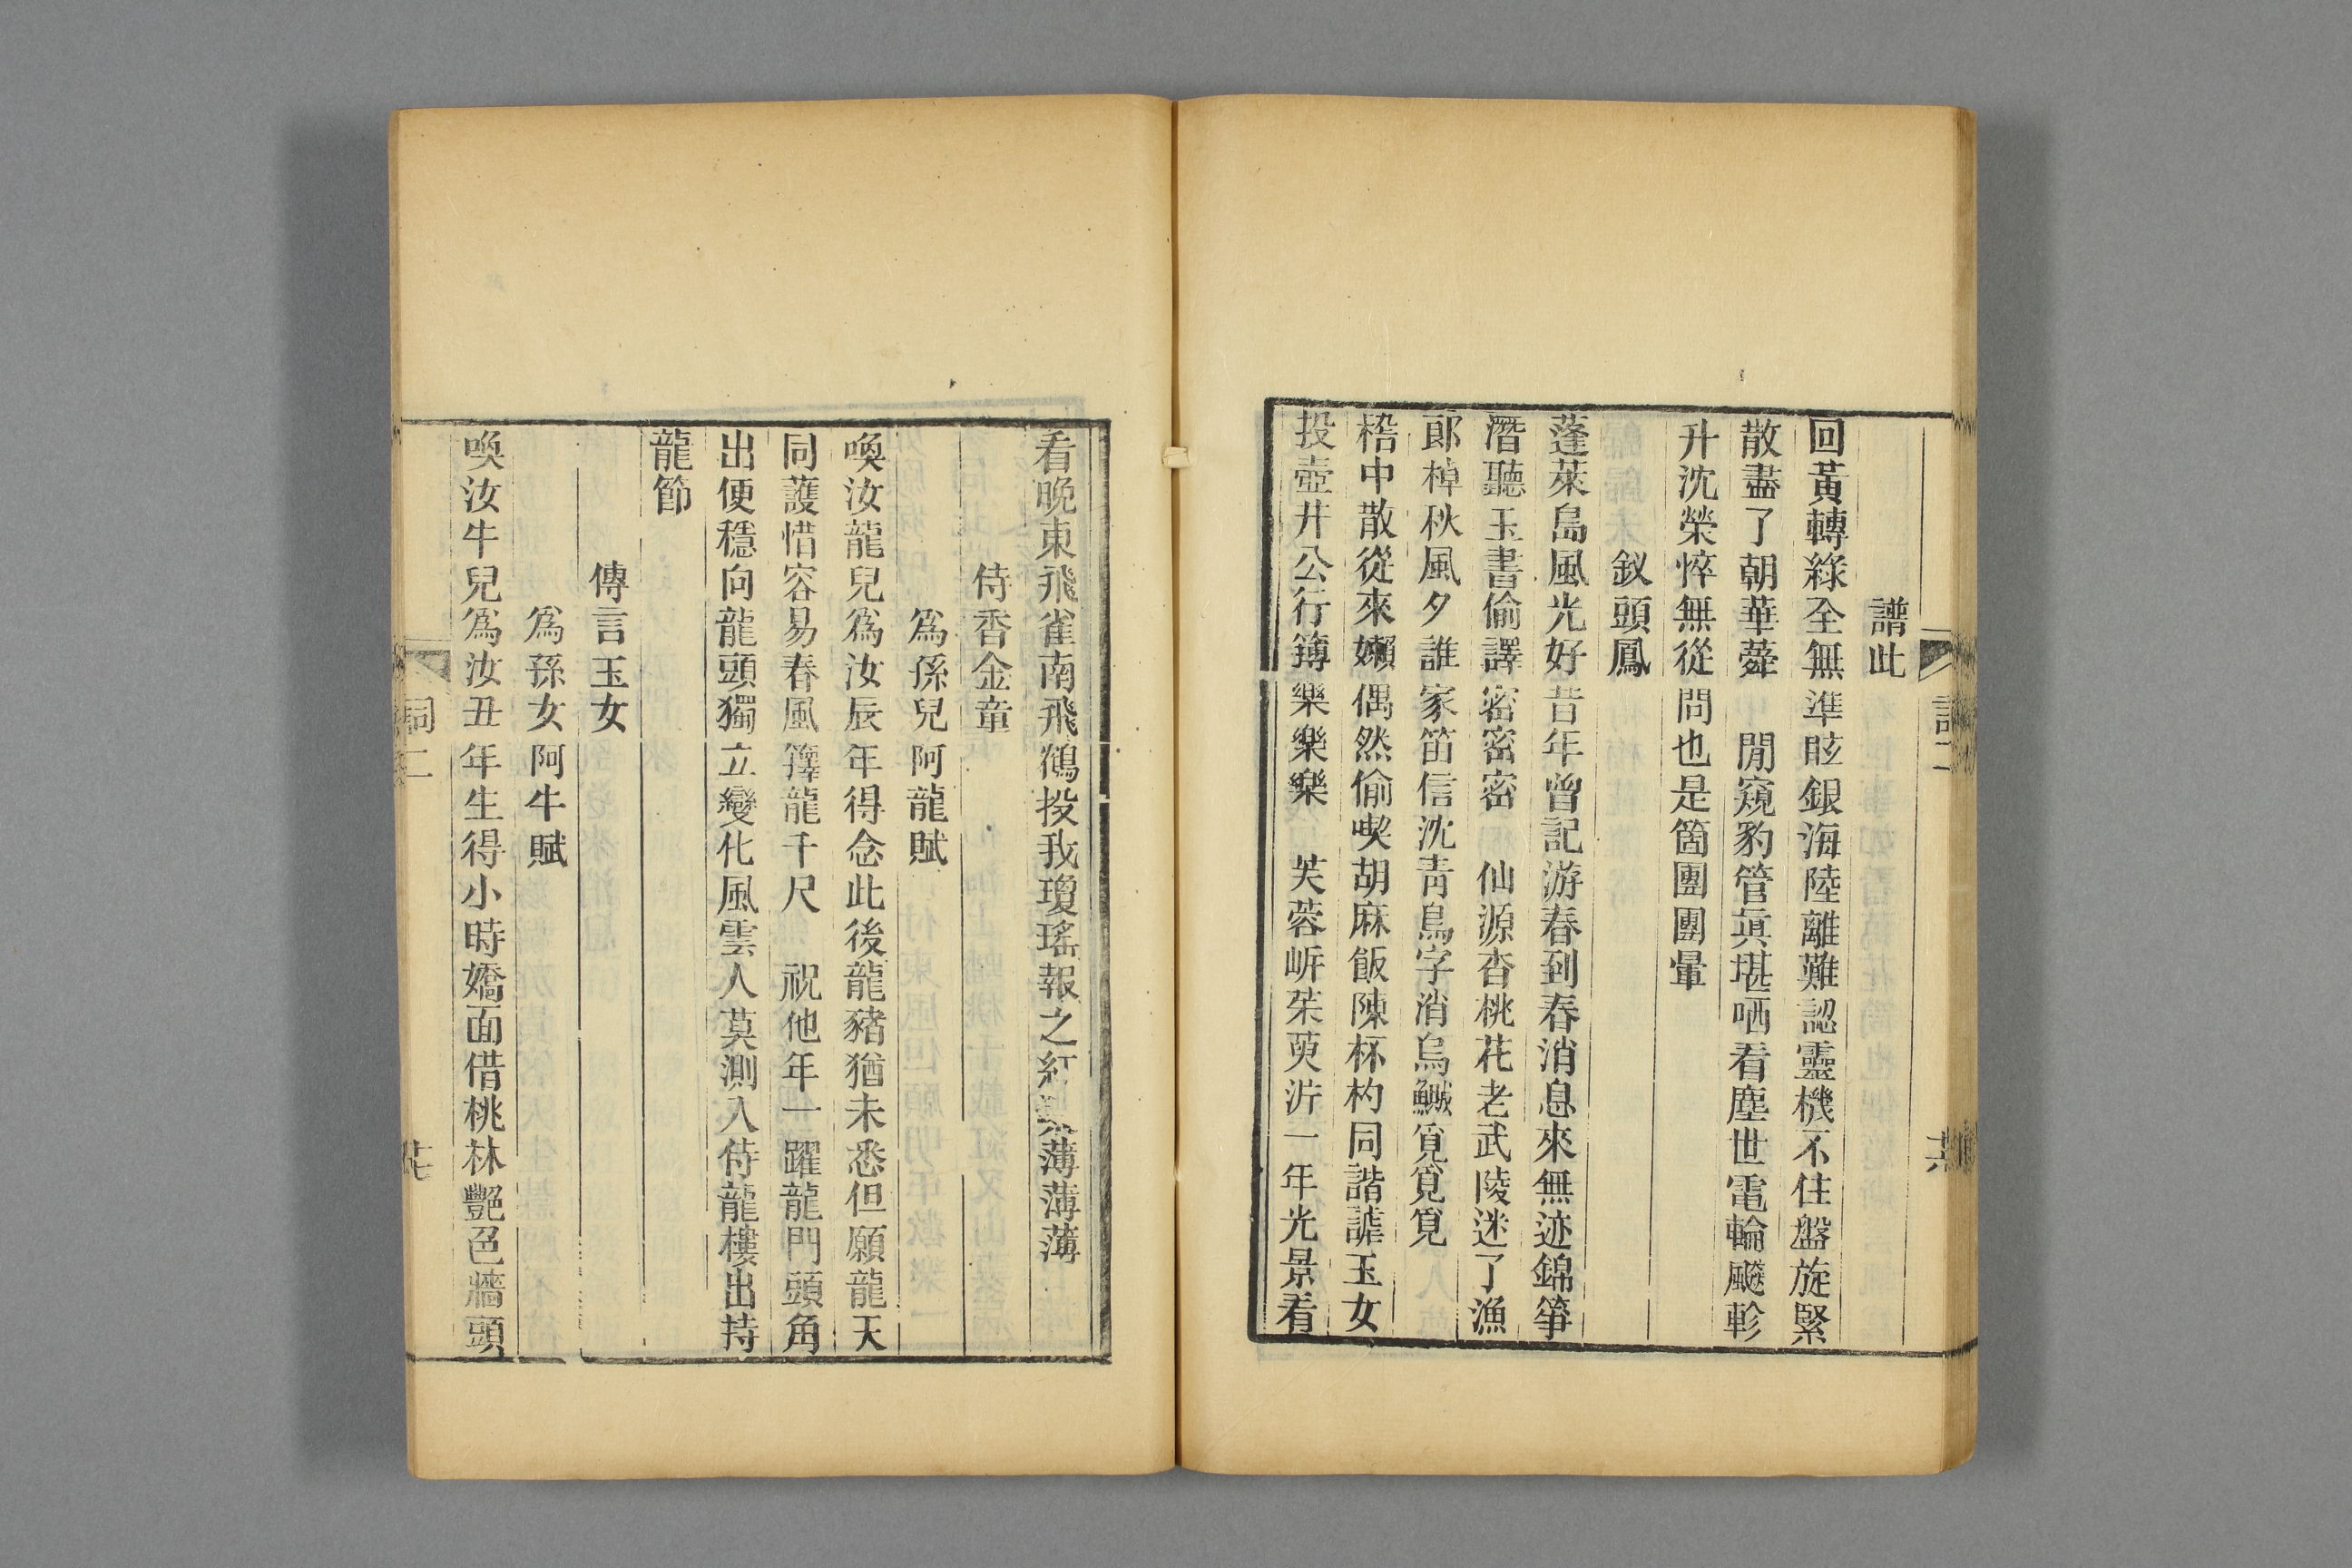 譜此
回黃轉綠全無準眩銀海陸離難認靈機不住盤旋緊
散盡了朝華蕣　閒窺豹管眞堪哂看塵世電輪飈軫
升沈榮悴無從問也是箇團團暈
釵頭鳳
蓬萊島風光好昔年曾記游春到春消息來無迹錦箏
潛聽玉書偷譯密密密　仙源杳桃花老武陵迷了漁
郞棹秋風夕誰家笛信沈靑鳥字消烏鰂覓覓覓
梧中散從來嬾偶然偷喫胡麻飯陳杯杓同諧謔玉女
投壺井公行簙樂樂樂　芙蓉㟁茱萸沜一年光景看
詞二
共
看晚東飛雀南飛鶴投我瓊瑤報之紅薄薄薄
侍香金童
爲孫兒阿龍賦
喚汝龍兒爲汝辰年得念此後龍豬猶未悉但願龍天
同護惜容易春風籜龍千尺　祝他年一躍龍門頭角
出便穩向龍頭獨立變化風雲人莫測入侍龍樓出持
龍節
傳言玉女
爲孫女阿牛賦
喚汝牛兒爲汝丑年生得小時嬌面借桃林艷色牆頭
詞二